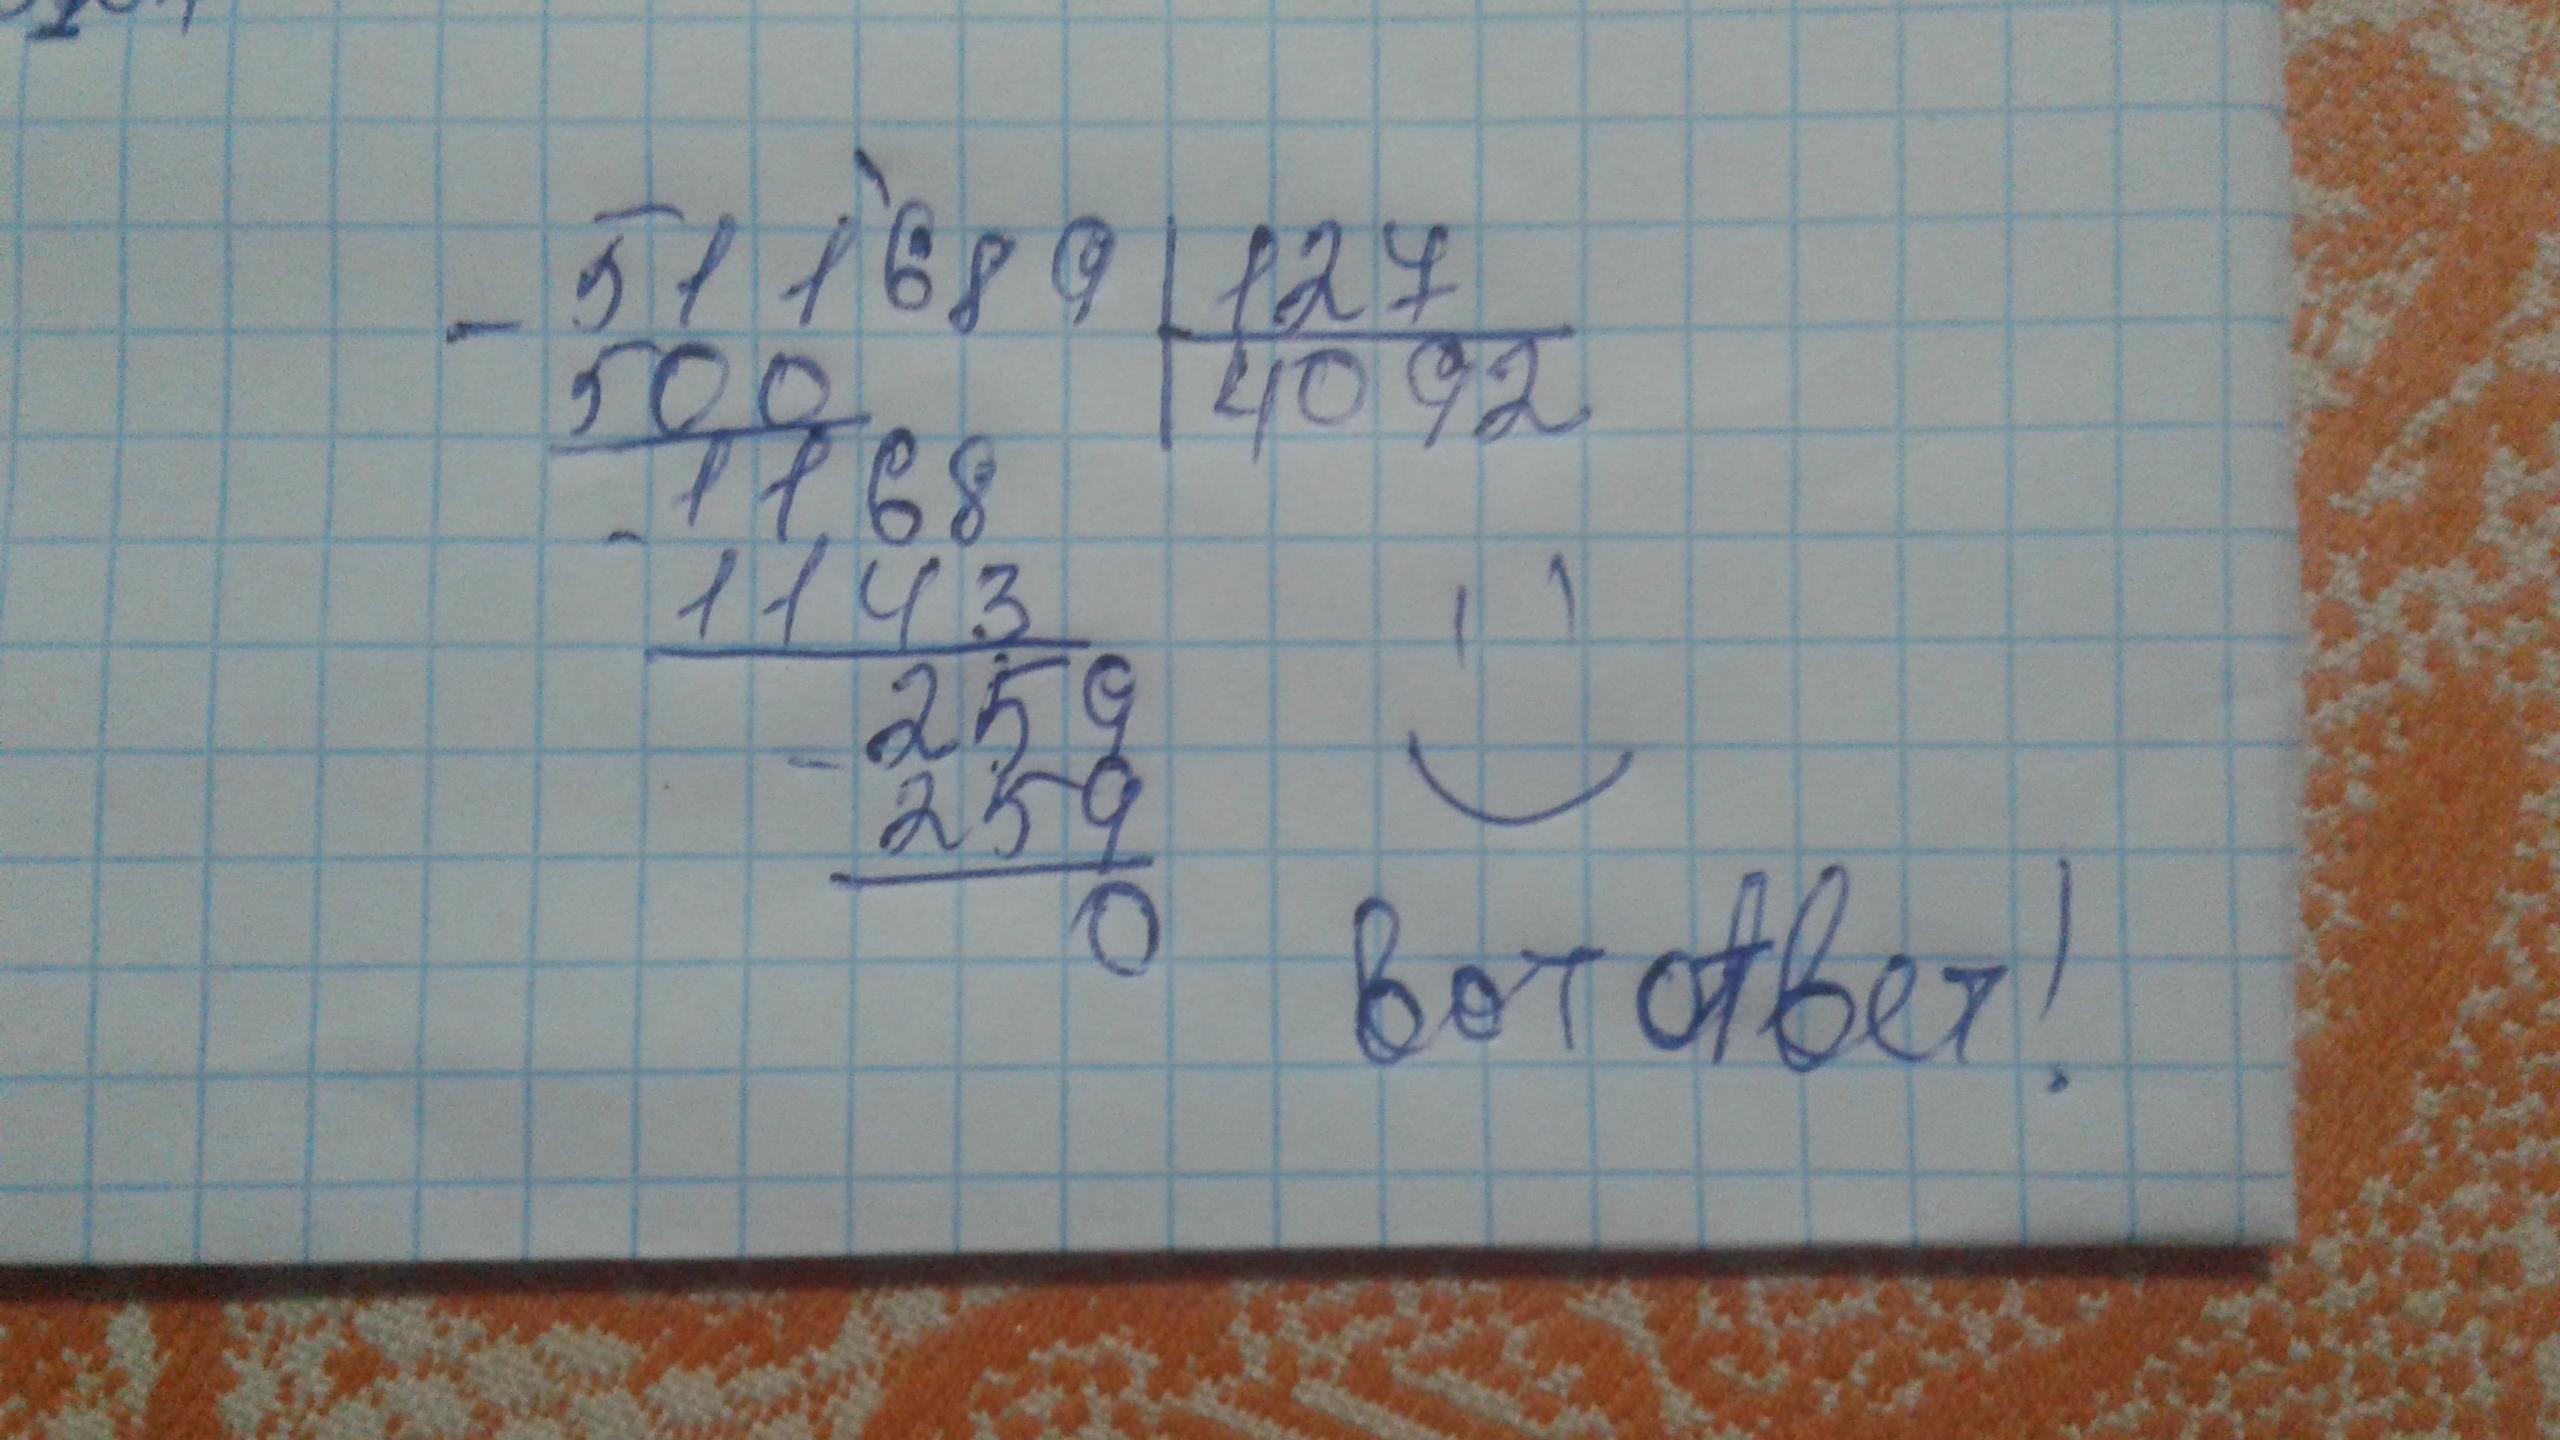 - 511689 | 127
500 | 4092
- 1168
1143
- 259
259
0
Вот ответ!